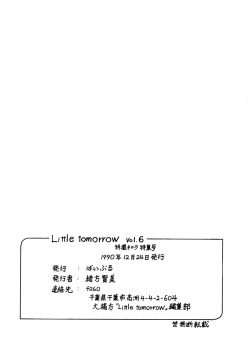 Little tomorrow Vol.6
特撮キャラ特集号
1990年12月24日発行
発行 : ぱいぷる
発行者 : 緒方賢美
連絡先 : 〒260
千葉県千葉市高洲4-4-2-604
大緒方「Little tomorrow」編集部
禁無断転載